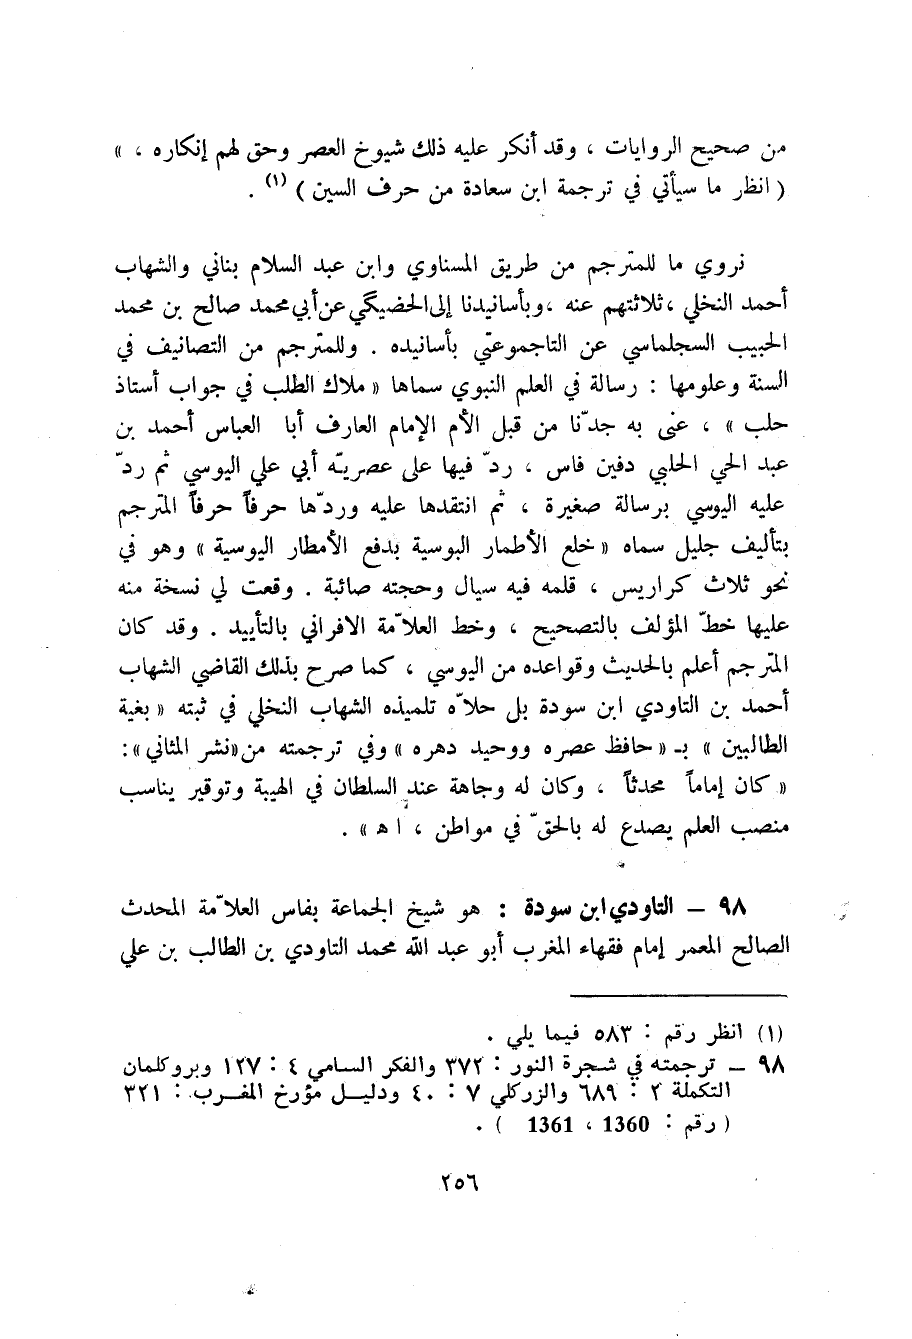 من صحيح الروايات ، وقد أنكر عليه ذلك شيوخ العصر وحق لهم إنكاره ، »
( انظر ما سيأتي في ترجمة ابن سعادة من حرف السين ) (١) .
نروي ما للمترجم من طريق المسناوي وابن عبد السلام بناني والشهاب
أحمد النخلي ، ثلاثتهم عنه ، وبأسانيدنا إلى الحضيكي عن أبي محمد صالح بن محمد
الحبيب السجلماسي عن التاجموعتي بأسانيده . وللمترجم من التصانيف في
السنة وعلومها : رسالة في العلم النبوي سماها « ملاك الطلب في جواب أستاذ
حلب » ، عنى به جدّنا من قبل الأم الإمام العارف أبا العباس أحمد بن
عبد الحي الحلبي دفين فاس ، ردّ فيها على عصريّه أبي علي اليوسي ثم ردّ
عليه اليوسي برسالة صغيرة ، ثم انتقدها عليه وردّها حرفاً حرفاً المترجم
بتأليف جليل سماه « خلع الأطمار البوسية بدفع الأمطار اليوسية » وهو في
نحو ثلاث كراريس ، قلمه فيه سيال وحجته صائبة . وقعت لي نسخة منه
عليها خطّ المؤلف بالتصحيح ، وخط العلاّمة الافراني بالتأييد . وقد كان
المترجم أعلم بالحديث وقواعده من اليوسي ، كما صرح بذلك القاضي الشهاب
أحمد بن التاودي ابن سودة بل حلاّه تلميذه الشهاب النخلي في ثبته « بغية
الطالبين » بـ « حافظ عصره ووحيد دهره » وفي ترجمته من « نشر المثاني » :
« كان إماماً محدثاً ، وكان له وجاهة عند السلطان في الهيبة وتوقير يناسب
منصب العلم يصدع له بالحقّ في مواطن ، ا ه » .
٩٨ – التاودي ابن سودة : هو شيخ الجماعة بفاس العلاّمة المحدث
الصالح المعمر إمام فقهاء المغرب أبو عبد الله محمد التاودي بن الطالب بن علي
(١) انظر رقم : ٥٨٣ فيما يلي .
٩٨ – ترجمته في شجرة النور : ٣٧٢ والفكر السامي ٤ : ١٢٧ وبروكلمان
التكملة ٢ : ٦٨٩ والزركلي ٧ : ٤٠ ودليـل مؤرخ المغـرب : ٣٢١
( رقم : 1360 ، 1361 ) .
٢٥٦